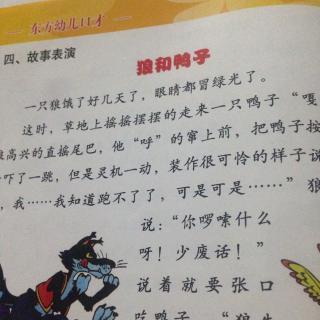 东方幼儿口才
四、故事表演
狼和鸭子
一只狼饿了好几天了，眼睛都冒绿光了。
这时，草地上摇摇摆摆的走来一只鸭子“嘎
高兴的直摇尾巴，他“呼”的窜上前，把鸭子按
吓了一跳，但是灵机一动，装作很可怜的样子说
，我……我知道跑不了了，可是可是……”狼
说：“你啰嗦什么
呀！少废话！”
说着就要张口
吃鸭子。“狼先